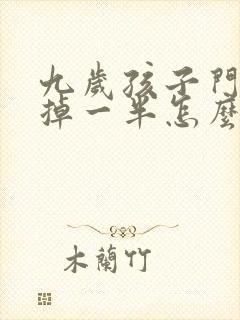 九歲孩子門
掉一半怎麼
木蘭竹